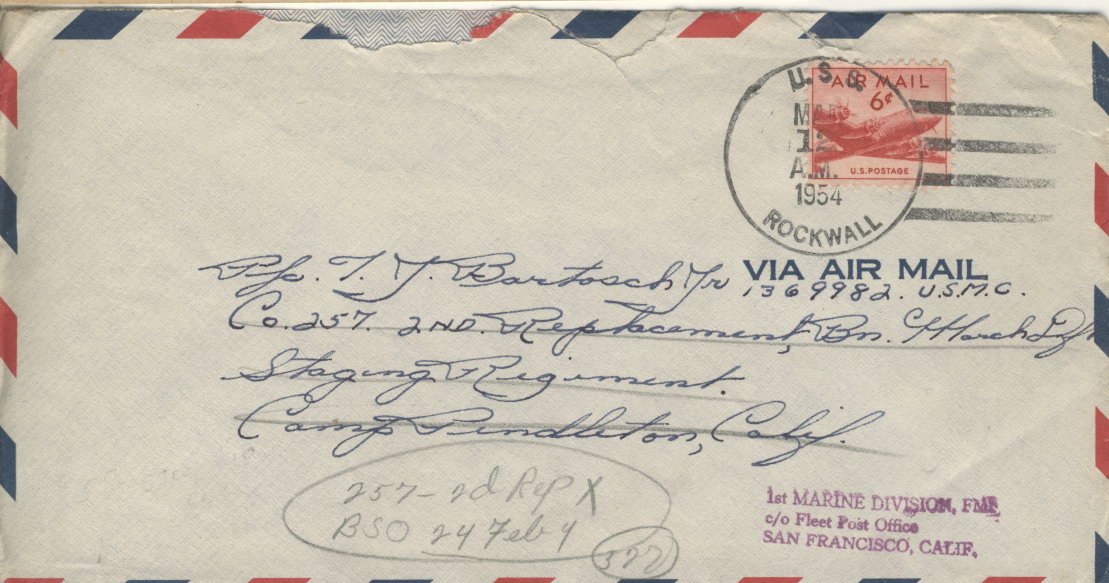 U.S.S.
AIR MAIL
6¢
MAR
12
A.M.
U.S. POSTAGE
1954
ROCKWALL
VIA AIR MAIL
Pfc. T. J. Bartosch Jr
1369982. U.S.M.C.
Co. 257. 2ND. Replacement, Bn. March
Staging Regiment.
Camp Pendleton, Calif.
257-2d Rep X
BSO 24 Feb 4
322
1st MARINE DIVISION, FMF
c/o Fleet Post Office
SAN FRANCISCO, CALIF.